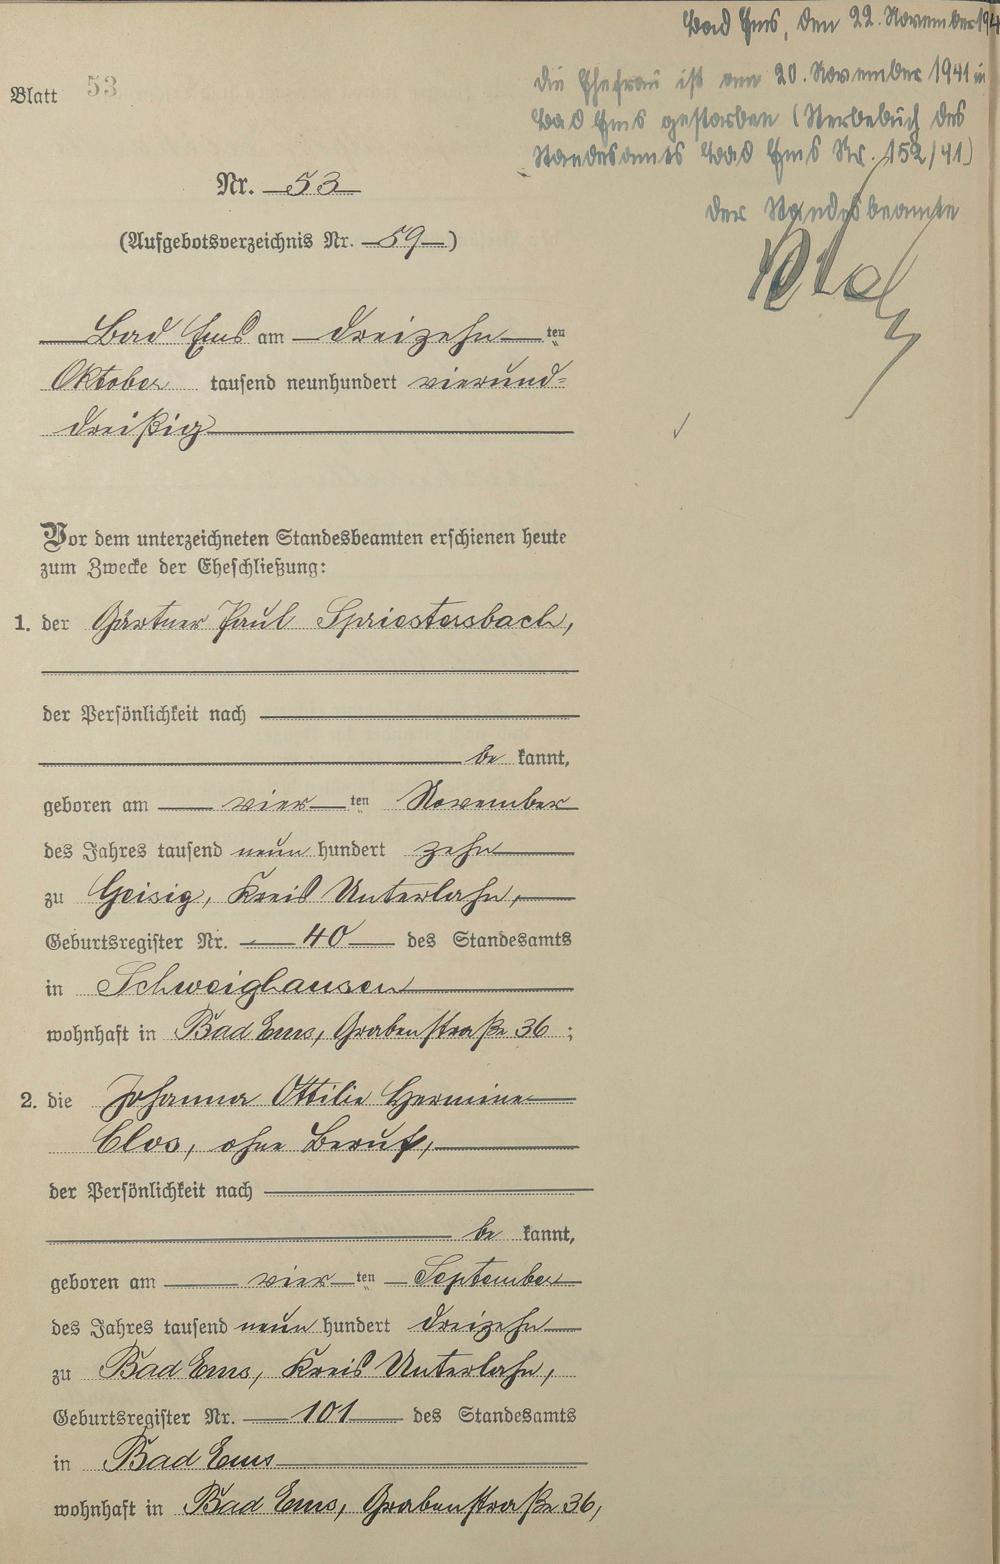 Bad Ems, den 22. November 194
die Ehefrau ist am 20. November 1941 in
Bad Ems gestorben (Sterbebuch des
Standesamts Bad Ems Nr. 152/41)
der Standesbeamte
Blatt 53
Nr. 53
(Aufgebotsverzeichnis Nr. 59)
Bad Ems am dreizehn ten
Oktober tausend neunhundert vierund=
dreißig
Vor dem unterzeichneten Standesbeamten erschienen heute
zum Zwecke der Eheschließung:
1. der Gärtner Paul Spriestersbach,
der Persönlichkeit nach
be kannt,
geboren am vier ten November
des Jahres tausend neun hundert zehn
zu Geisig, Kreis Unterlahn,
Geburtsregister Nr. 40 des Standesamts
in Schweighausen
wohnhaft in Bad Ems, Grabenstraße 36 ;
2. die Johanna Ottilie Hermine
Clos, ohne Beruf,
der Persönlichkeit nach
be kannt,
geboren am vier ten September
des Jahres tausend neun hundert dreizehn
zu Bad Ems, Kreis Unterlahn,
Geburtsregister Nr. 101 des Standesamts
in Bad Ems
wohnhaft in Bad Ems, Grabenstraße 36,